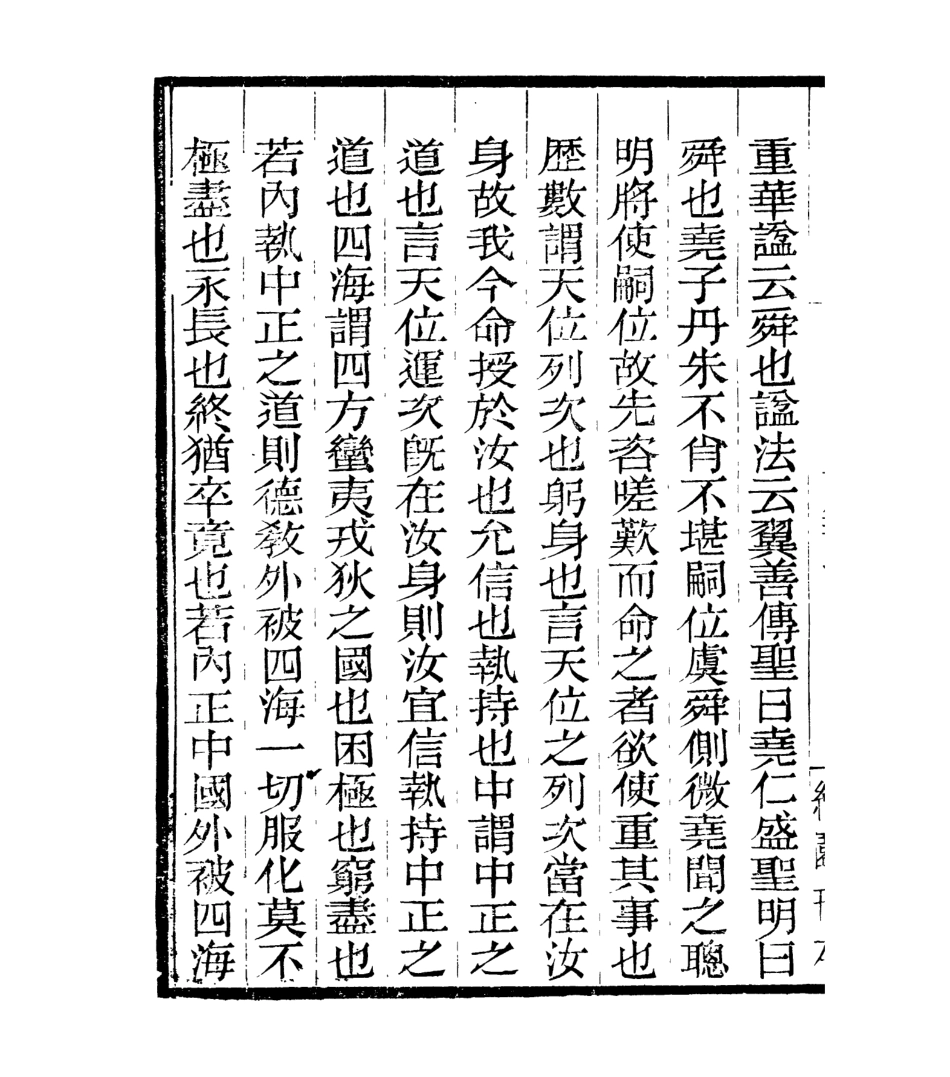 重華謚云舜也謚法云翼善傳聖曰堯仁盛聖明曰
舜也堯子丹朱不肖不堪嗣位虞舜側微堯聞之聰
明將使嗣位故先咨嗟歎而命之者欲使重其事也
歷數謂天位列次也躬身也言天位之列次當在汝
身故我今命授於汝也允信也執持也中謂中正之
道也言天位運次旣在汝身則汝宜信執持中正之
道也四海謂四方蠻夷戎狄之國也困極也窮盡也
若內執中正之道則德教外被四海一切服化莫不
極盡也永長也終猶卒竟也若內正中國外被四海